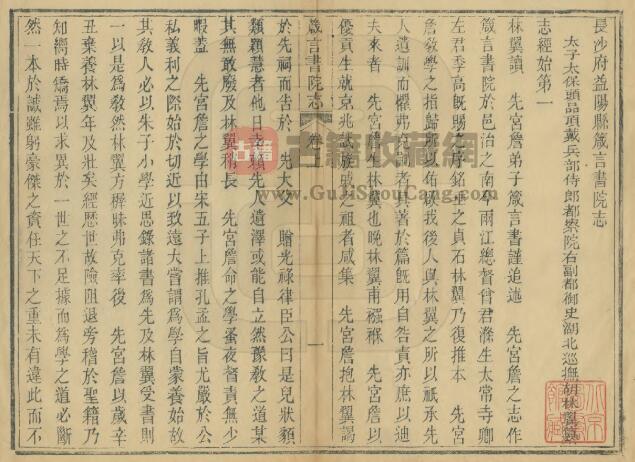 長沙府益陽縣箴言書院志
太子太保頭品頂戴兵部侍郎都察院右副都御史湖北巡撫胡林翼纂
志經始第一
林翼讀 先宮詹弟子箴言書謹追述 先宮詹之志作
箴言書院於邑治之南 兩江總督曾君滌生太常寺卿
左君季高旣賜之序銘 之貞石林翼乃復推本 先宮
詹敎學之指歸所以佑啟我後人與林翼之所以祗承先
人遺訓而懼弗克副者其著於篇旣用自告責亦庶以迪
夫來者 先宮詹生林翼也晚林翼甫襁褓 先宮詹以
優貢生就京兆試 戚之祖者咸集 先宮詹抱林翼謁
箴言書院志 卷一 一
於先祠而告於 先大父 贈光祿律臣公曰是兒狀貌
類穎慧者他日幸 先人遺澤或能自立然豫敎之道某
其無敢廢及林翼稍長 先宮詹命之學蚤夜督責無少
暇蓋 先宮詹之學由宋五子上推孔孟之旨尤嚴於公
私義利之際始於切近以致遠大嘗謂爲學自蒙養始故
其敎人必以朱子小學近思錄諸書爲先及林翼受書則
一以是爲敎然林翼方穉昧弗克率從 先宮詹以歲辛
丑棄養林翼年及壯矣經歷世故險阻退旁稽於聖籍乃
知嚮時矯焉以求異於一世之不足據而爲學之道必斷
然一本於誠雖躬豪傑之資任天下之重未有違此而不
古籍收藏网
www.GuJiShouCang.com